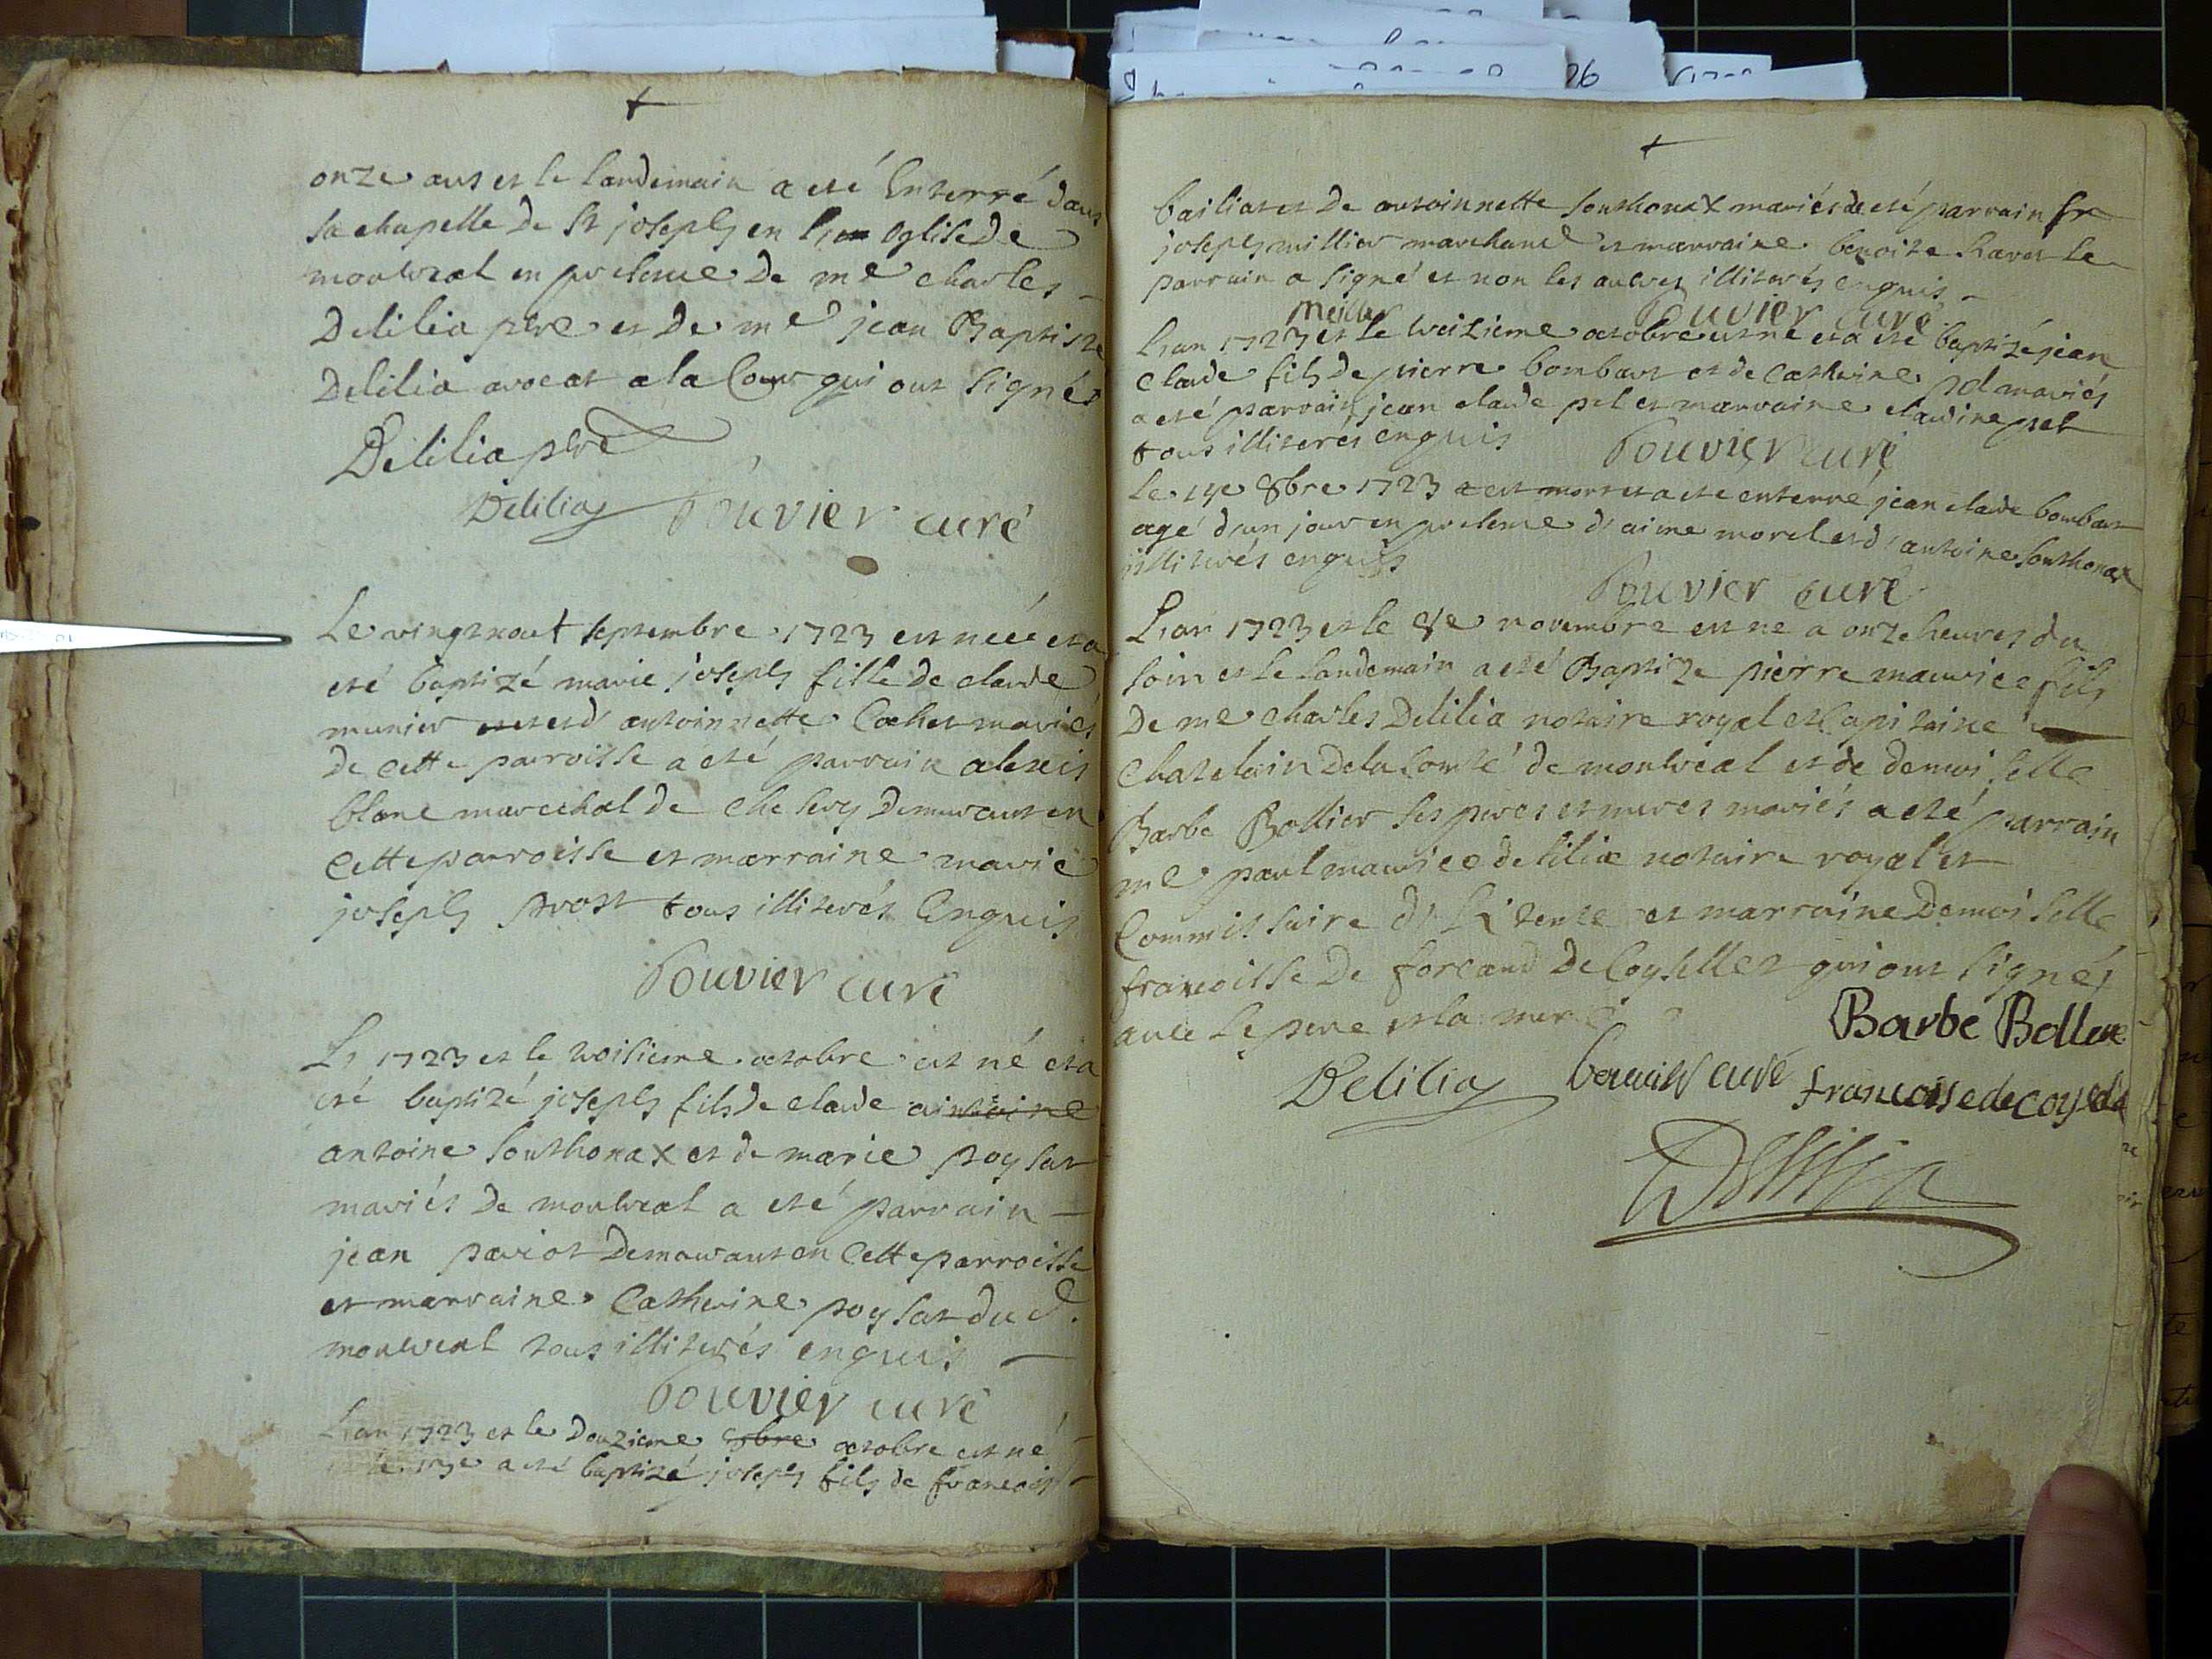 onze ans et le landemain a eté Enterré dans
sa chapelle de St joseph en l'eglise de
montreal en presence de me charles
Delilia pbre et de me jean Baptiste
Delilia avocat a la Cour qui ont signés
Delilia pbre
Delilia Bouvier curé
Le vingt septembre 1723 est neéé et a
eté baptizé marie joseph fille de claude
munier et d'antoinnette Cochet mariés
de cette parroisse a eté parrain alexis
blanc marechal de demeurant en
Cette parroisse et marraine marie
joseph prost tous illiterés Enquis
Bouvier curé
L' 1723 et le troisieme octobre est né et a
eté baptizé joseph fils de claude antoine
antoine Sonthonax et de marie poysat
mariés de montreal a eté parrain
jean paviot Demeurant en Cette parroisse
et marraine Catherine poysat du d.
montreal tous illiterés enquis
Bouvier curé
L'an 1723 et le Douzieme 8bre octobre est né
le 13e a eté baptizé joseph fils de francois
bailiat et de antoinnette Sonthonax mariés a eté parrain fr
joseph millier marchand et marraine benoite ravet le
parrain a signé et non les autres illiterés enquis
Meillier Bouvier curé
L'an 1723 et le treizieme octobre est né et a eté baptizé jean
claude fils de pierre bombart et de Catherine pel mariés
a eté parrain jean claude pel et marraine claudine pel
tous illiterés enquis Bouvier curé
Le 14e 8bre 1723 a est mort et a ete enterré jean claude bombart
agé d'un jour en presence d'aime morel et d'antoine Sonthonax
illiterés enquis
Bouvier curé
L'an 1723 et le 8e novembre est ne a onze heures du
soir et le landemain a eté Baptize pierre maurice fils
De me charles Delilia notaire royal et Capitaine
Chatelain De la Comté de montreal et de demoiselle
Barbe Bollier ses peres et meres mariés a eté parrain
me paul maurice delilia notaire royal et
Commissaire d' et marraine Demoiselle
francoisse De forcand De Coysellet qui ont signés
avec le pere et la mere
Barbe Bollier
Delilia bouvier curé francoisse de coyselet
Delilia